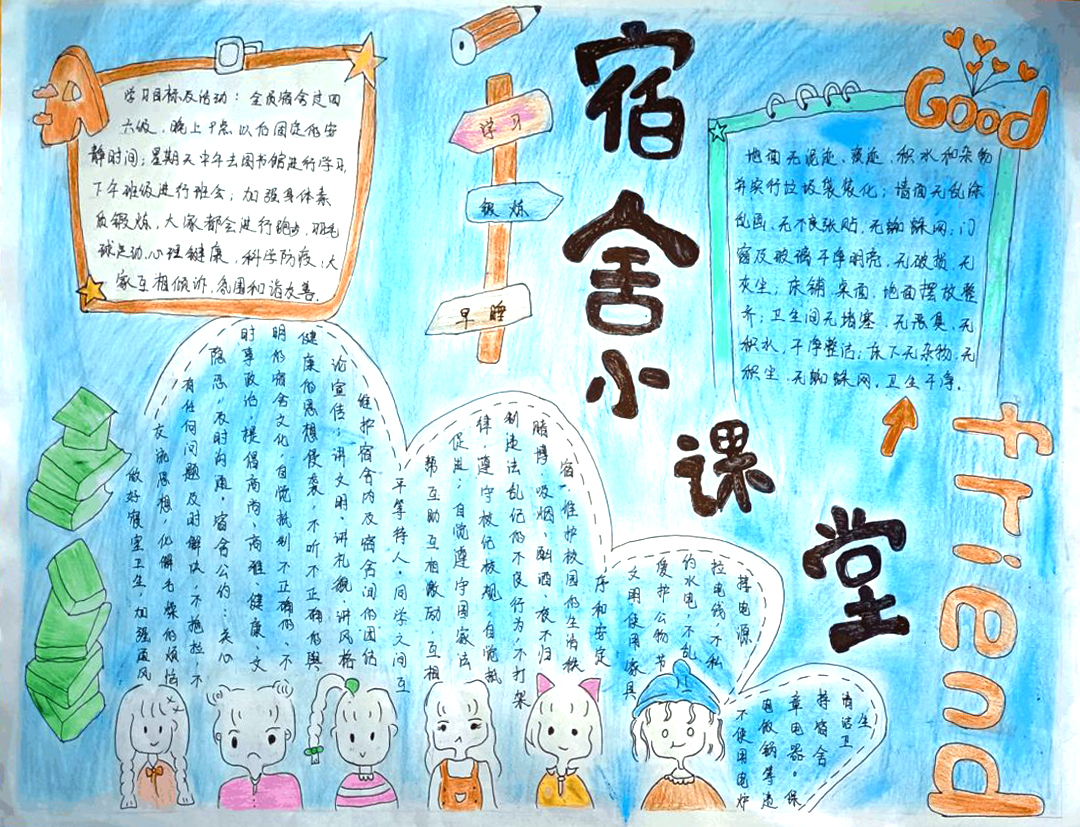 宿舍小课堂
Good
friend
学习
锻炼
早睡
学习目标及活动：全员宿舍过四
六级，晚上9点以后固定的安
静时间；星期天中午去图书馆进行学习，
下午班级进行班会；加强身体素
质锻炼，大家都会进行跑步，羽毛
球运动，心理健康，科学防疫；大
家互相倾诉，氛围和谐友善.
地面无泥迹、痰迹、积水和杂物
并实行垃圾袋装化；墙面无乱涂
乱画、无不良张贴，无蜘蛛网；门
窗及玻璃干净明亮，无破损、无
灰尘；床铺、桌面，地面摆放整
齐；卫生间无堵塞、无恶臭、无
积水，干净整洁；床下无杂物、无
积尘、无蜘蛛网，卫生干净.
做好寝室卫生，加强通风
交流思想，化解的烦恼
有任何问题及时解决，不拖拉，不
隐患，及时沟通。宿舍公约：关心
时事政治，提倡高尚、高雅、健康、文
明的宿舍文化，自觉抵制不正确的、不
健康的思想侵袭，不听不正确的舆
论宣传；讲文明、讲礼貌、讲风格
维护宿舍内及宿舍间的团结
平等待人，同学之间互
帮互助互相激励 互相
促进；自觉遵守国家法
律，遵守校纪校规，自觉抵
制违法乱纪的不良行为，不打架
赌博、吸烟、酗酒、夜不归
宿，维护校园的生活秩
序和安定
文明使用家具
爱护公物、节
约水电，不乱
拉电线，不私
接电源
不使用电炉
电饭锅等违
章电器。保
持宿舍
清洁卫
生